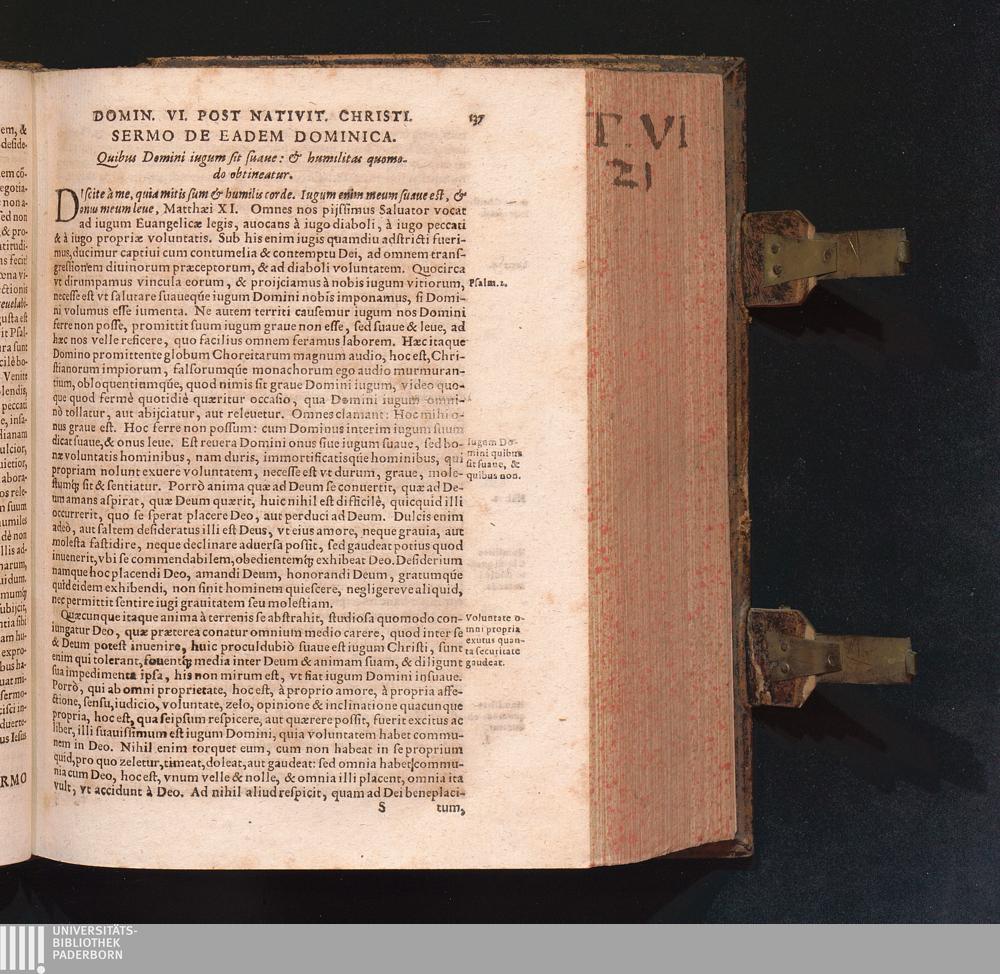 DOMIN. VI. POST NATIVIT. CHRISTI. 137
SERMO DE EADEM DOMINICA.
Quibus Domini iugum sit suaue: & humilitas quomo-
do obtineatur.
DIscite à me, quia mitis sum & humilis corde. Iugum enim meum suaue est, &
onus meum leue, Matthæi XI. Omnes nos pijssimus Saluator vocat
ad iugum Euangelicæ legis, auocans à iugo diaboli, à iugo peccati
& à iugo propriæ voluntatis. Sub his enim iugis quamdiu adstricti fueri-
mus, ducimur captiui cum contumelia & contemptu Dei, ad omnem trans-
gressionem diuinorum præceptorum, & ad diaboli voluntatem. Quocirca
vt dirumpamus vincula eorum, & proijciamus à nobis iugum vitiorum,
necesse est vt salutare suaueq́ue iugum Domini nobis imponamus, si Domi-
ni volumus esse iumenta. Ne autem territi causemur iugum nos Domini
ferre non posse, promittit suum iugum graue non esse, sed suaue & leue, ad
hæc nos velle reficere, quo facilius omnem feramus laborem. Hæc itaque
Domino promittente globum Choreitarum magnum audio, hoc est, Chri-
stianorum impiorum, falsorumq́ue monachorum ego audio murmuran-
tium, obloquentiumq́ue, quod nimis sit graue Domini iugum, video quo-
que quod fermè quotidiè quæritur occasio, qua Domini iugum omni-
nò tollatur, aut abijciatur, aut releuetur. Omnes clamant: Hoc mihi o-
nus graue est. Hoc ferre non possum: cum Dominus interim iugum suum
dicat suaue, & onus leue. Est reuera Domini onus siue iugum suaue, sed bo-
næ voluntatis hominibus, nam duris, immortificatisque hominibus, qui
propriam nolunt exuere voluntatem, necesse est vt durum, graue, mole-
stumq́; sit & sentiatur. Porrò anima quæ ad Deum se conuertit, quæ ad De-
um amans aspirat, quæ Deum quærit, huic nihil est difficilè, quicquid illi
occurrerit, quo se sperat placere Deo, aut perduci ad Deum. Dulcis enim
adeò, aut saltem desideratus illi est Deus, vt eius amore, neque grauia, aut
molesta fastidire, neque declinare aduersa possit, sed gaudeat potius quod
inuenerit, vbi se commendabilem, obedientemq́; exhibeat Deo. Desiderium
namque hoc placendi Deo, amandi Deum, honorandi Deum, gratumq́ue
quid eidem exhibendi, non sinit hominem quiescere, negligereve aliquid,
nec permittit sentire iugi grauitatem seu molestiam.
Quæcunque itaque anima à terrenis se abstrahit, studiosa quomodo con-
iungatur Deo, quæ præterea conatur omnium medio carere, quod inter se
& Deum potest inuenire, huic proculdubiò suaue est iugum Christi, sunt
enim qui tolerant, fouentq́; media inter Deum & animam suam, & diligunt
sua impedimenta ipsa, his non mirum est, vt fiat iugum Domini insuaue.
Porrò, qui ab omni proprietate, hoc est, à proprio amore, à propria affe-
ctione, sensu, iudicio, voluntate, zelo, opinione & inclinatione quacunque
propria, hoc est, qua seipsum respicere, aut quærere possit, fuerit excitus ac
liber, illi suauissimum est iugum Domini, quia voluntatem habet commu-
nem in Deo. Nihil enim torquet eum, cum non habeat in se proprium
quid, pro quo zeletur, timeat, doleat, aut gaudeat: sed omnia habet commu-
nia cum Deo, hoc est, vnum velle & nolle, & omnia illi placent, omnia ita
vult, vt accidunt à Deo. Ad nihil aliud respicit, quam ad Dei beneplaci-
S tum,
Psalm. 2.
Iugum Do-
mini quibus
sit suaue, &
quibus non.
Voluntate o-
mni propria
exutus quan-
ta securitate
gaudeat.
T. VI
21
RMO
UNIVERSITÄTS-
BIBLIOTHEK
PADERBORN